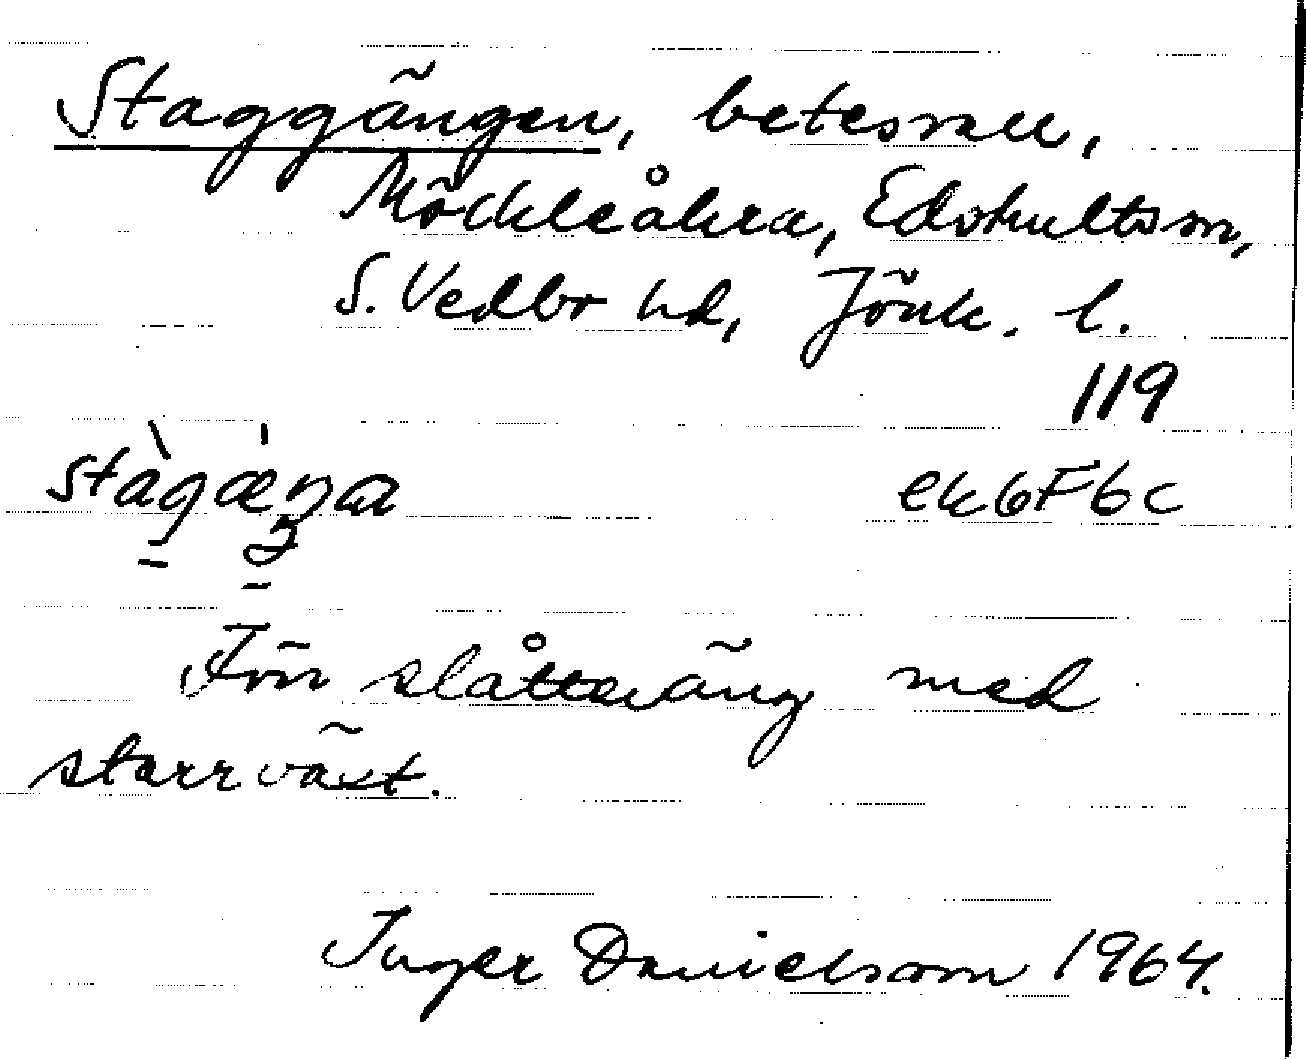 Staggängen, betesvall,
Möckleåkra, Edshults sn,
S. Vedbo hd, Jönk. l.
119
ek 6F6c
Förr slåtteräng med
starrväxt.
Inger Danielsson 1964.